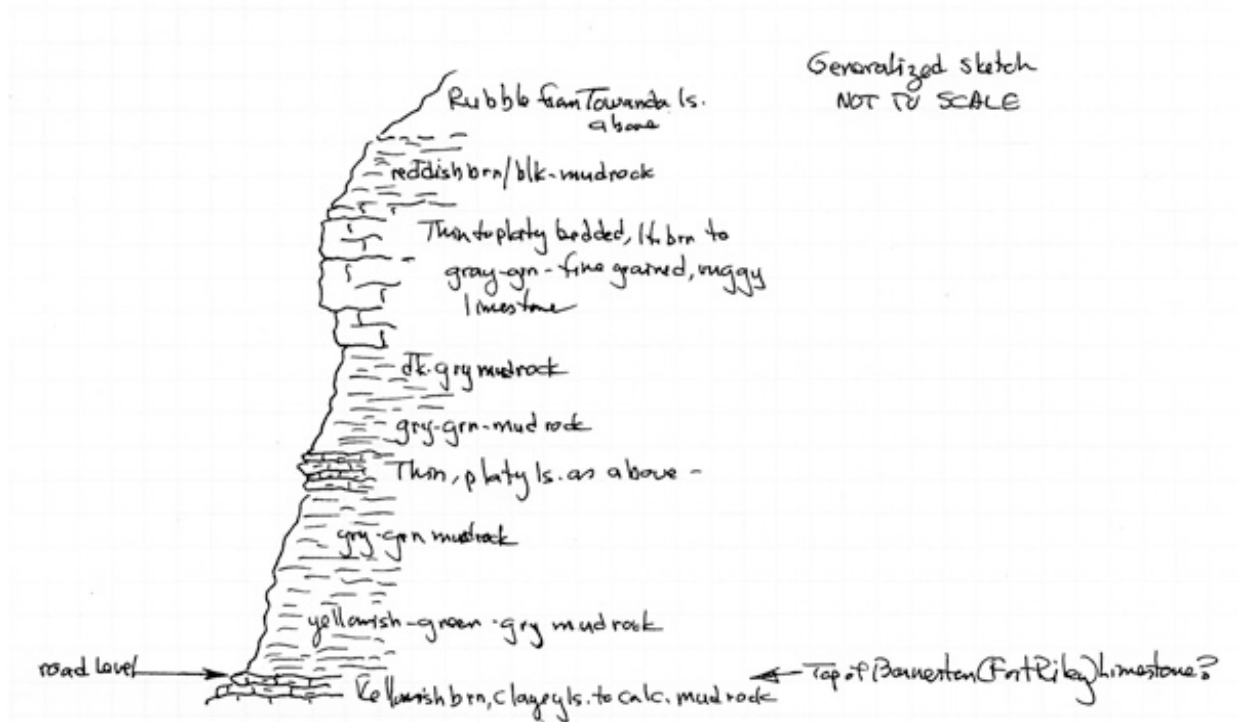 Generalized Sketch
NOT TO SCALE
Rubble from Towanda ls.
above
reddish brn/blk-mudrock
Thin to platy bedded, lt. brn to
gray-grn-fine grained, vuggy
limestone
dk. gry mudrock
gry-grn-mudrock
Thin, platy ls. as above -
gry-grn mudrock
yellowish-green-gry mudrock
road level
Top of Barneston (Fort Riley) Limestone?
Yellowish brn, clayey ls. to calc. mudrock